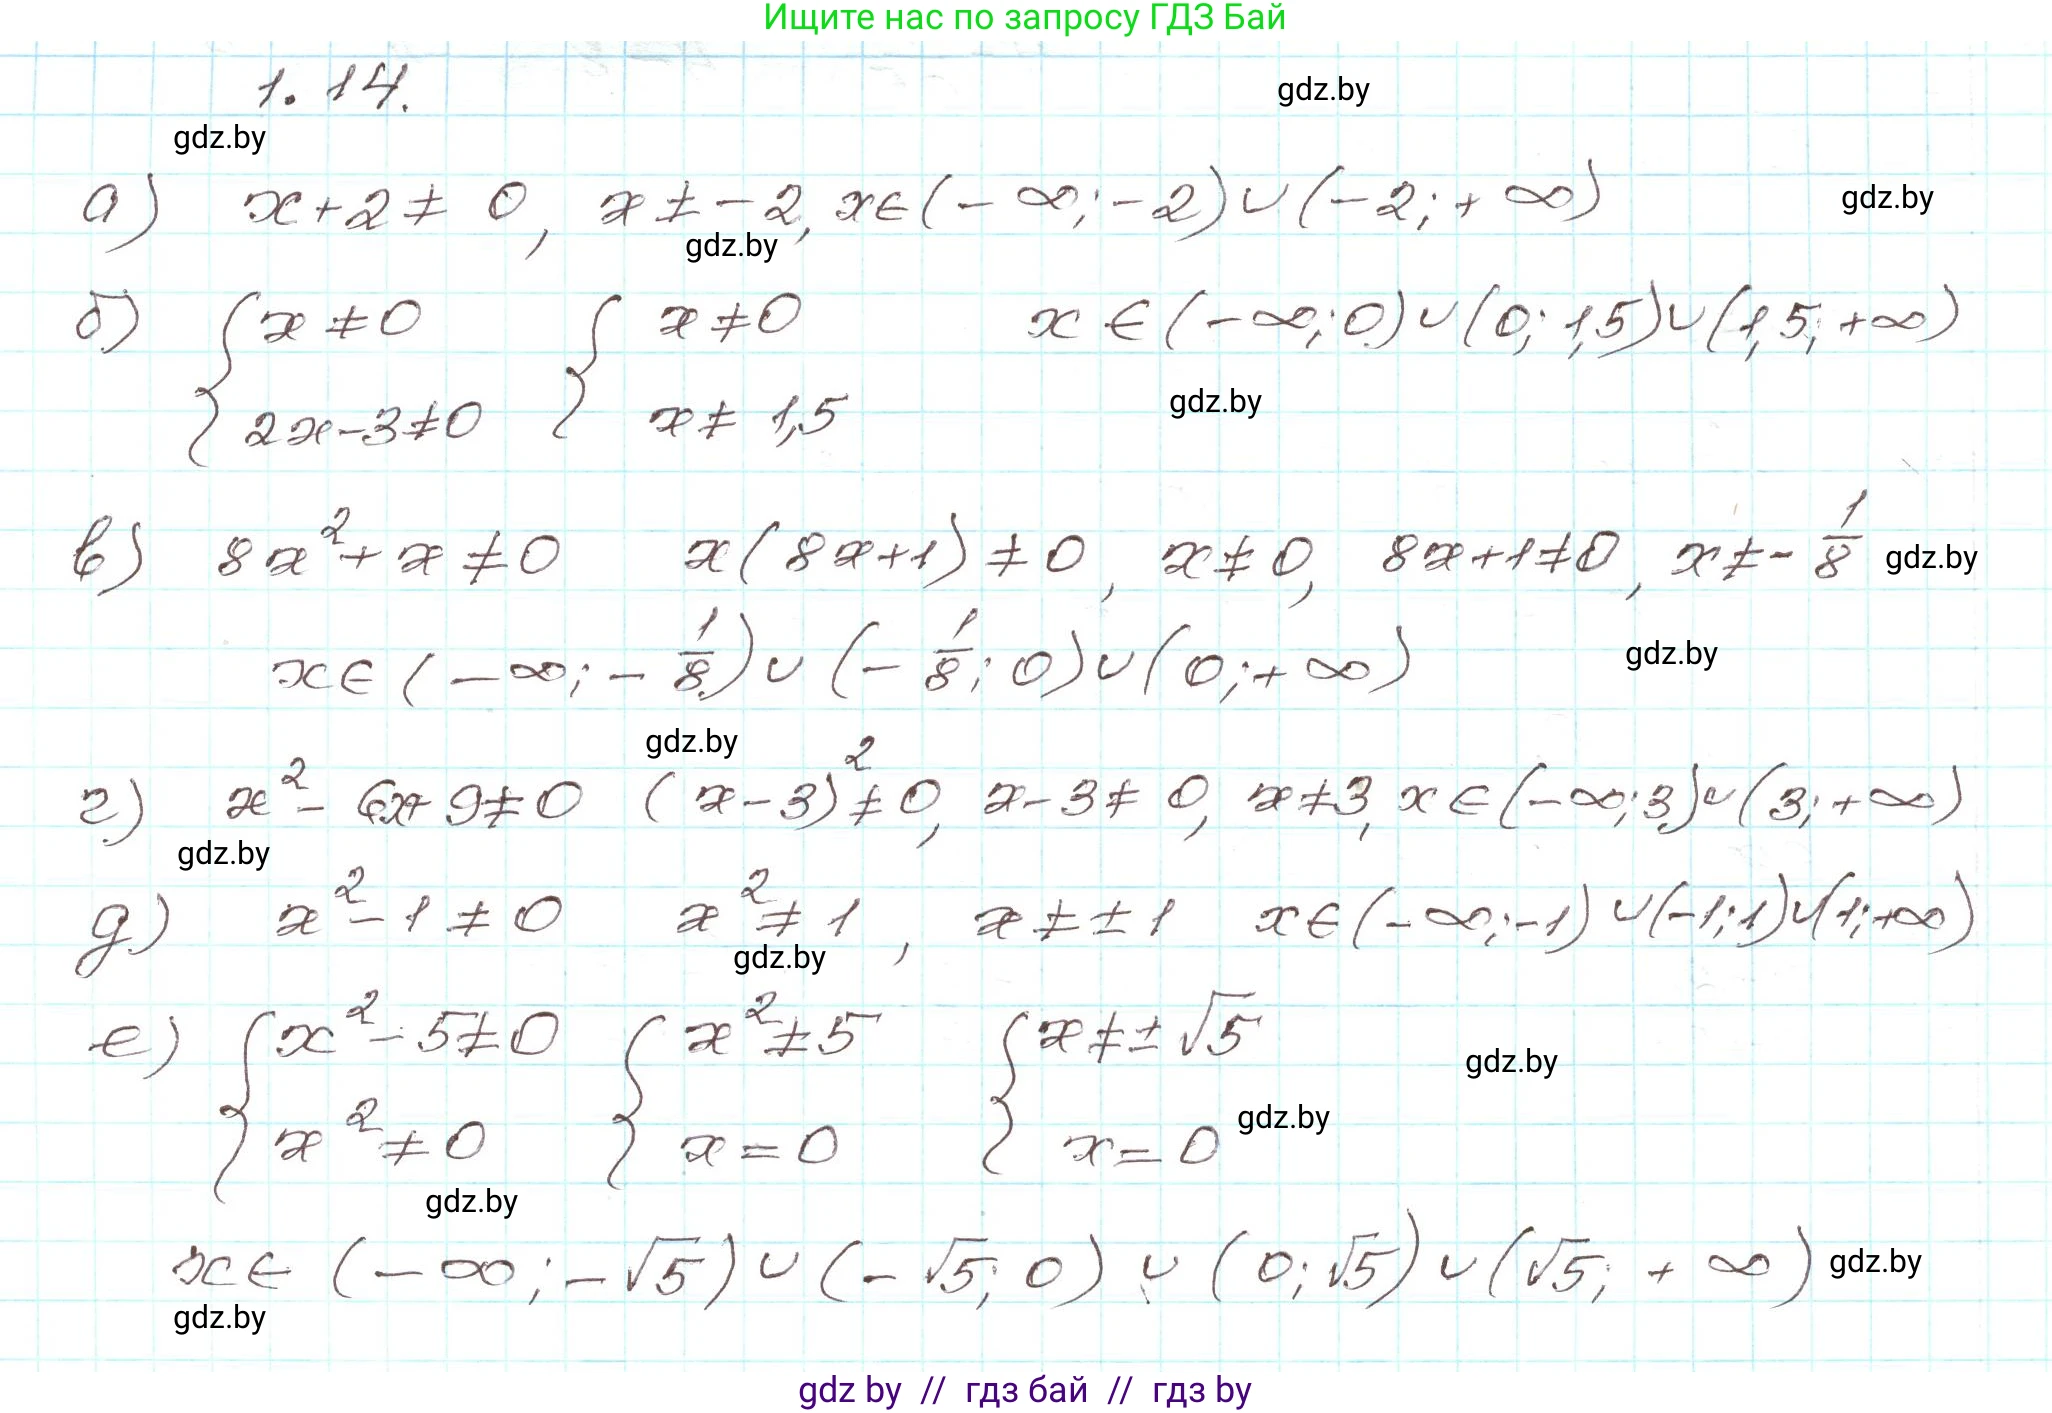 Ищите нас по запросу ГДЗ Бай
1.14.
gdz.by
gdz.by
а) x+2≠0, x≠-2, x∈(-∞;-2)∪(-2;+∞)
gdz.by
gdz.by
б) {x≠0 {x≠0 x∈(-∞;0)∪(0;1,5)∪(1,5;+∞)
2x-3≠0 x≠1,5
gdz.by
в) 8x²+x≠0 x(8x+1)≠0, x≠0, 8x+1≠0, x≠-1/8
gdz.by
x∈(-∞;-1/8)∪(-1/8;0)∪(0;+∞)
gdz.by
gdz.by
г) x²-6x+9≠0 (x-3)²≠0, x-3≠0, x≠3, x∈(-∞;3)∪(3;+∞)
gdz.by
д) x²-1≠0 x²≠1, x≠±1 x∈(-∞;-1)∪(-1;1)∪(1;+∞)
gdz.by
е) {x²-5≠0 {x²≠5 {x≠±√5
gdz.by
x²≠0 x=0 x=0
gdz.by
gdz.by
x∈(-∞;-√5)∪(-√5;0)∪(0;√5)∪(√5;+∞)
gdz.by
gdz.by
gdz by // гдз бай // гдз by